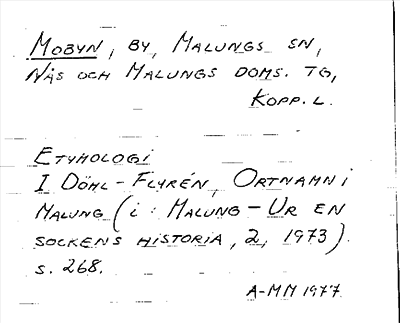 MOBYN, BY, MALUNGS SN,
NÄS OCH MALUNGS DOMS. TG,
KOPP. L.
ETYMOLOGI
I DÖHL-FLYRÉN, ORTNAMN I
MALUNG (I: MALUNG - UR EN
SOCKENS HISTORIA, 2, 1973).
S. 268.
A-MM 1977